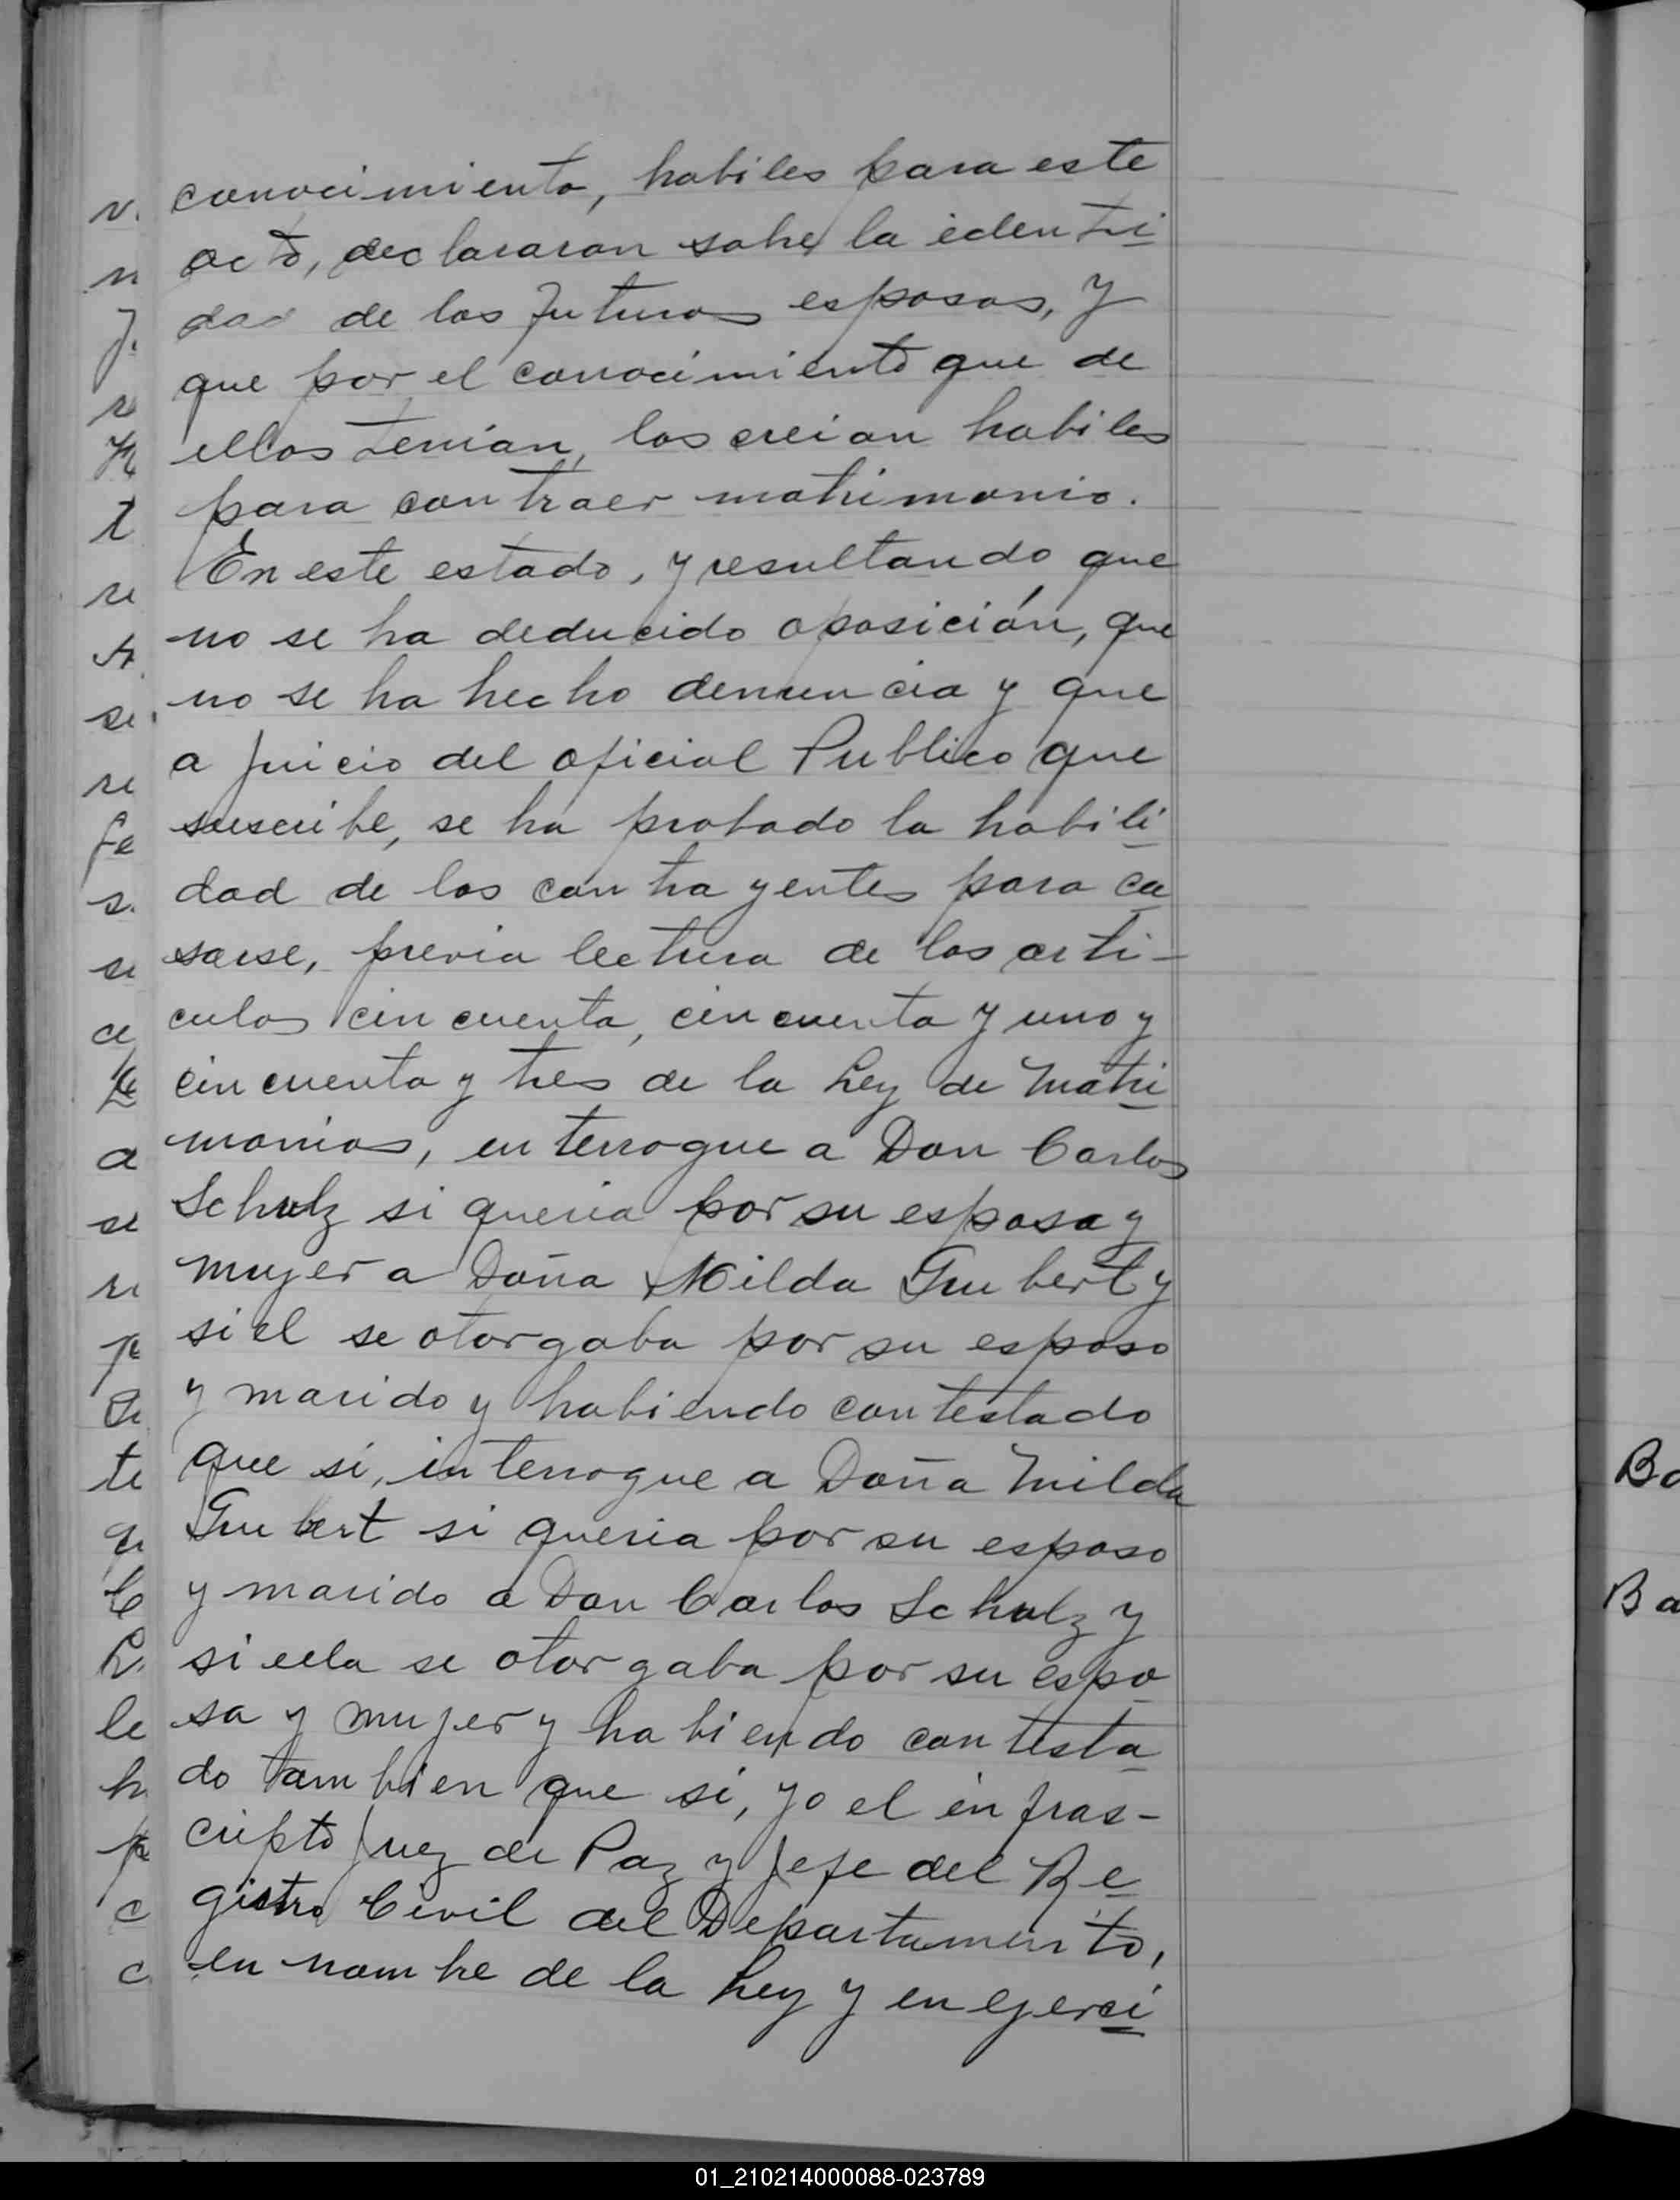 conocimiento, habiles para este
acto, declararon sobre la identi
dad de los futuros esposos, y
que por el conocimiento que de
ellos tenian, los creian habiles
para contraer matrimonio.
En este estado, y resultando que
no se ha deducido oposición, que
no se ha hecho denuncia y que
a juicio del oficial Publico que
suscribe, se ha probado la habili
dad de los contrayentes para ca
sarse, previa lectura de los arti-
culos cincuenta, cincuenta y uno y
cincuenta y tres de la Ley de Matri
monios, enterrogue a Don Carlos
Schulz si queria por su esposa y
mujer a Doña Milda Grubert y
si el se otorgaba por su esposo
y marido y habiendo contestado
que si, interrogue a Doña Milda
Grubert si queria por su esposo
y marido a Don Carlos Schulz y
si ella se otorgaba por su espo
sa y mujer y habiendo contesta
do tambien que si, yo el infras-
cripto Juez de Paz y Jefe del Re
gistro Civil del Departamento,
en nombre de la Ley y en ejerci
Ba
Ba
01_210214000088-023789